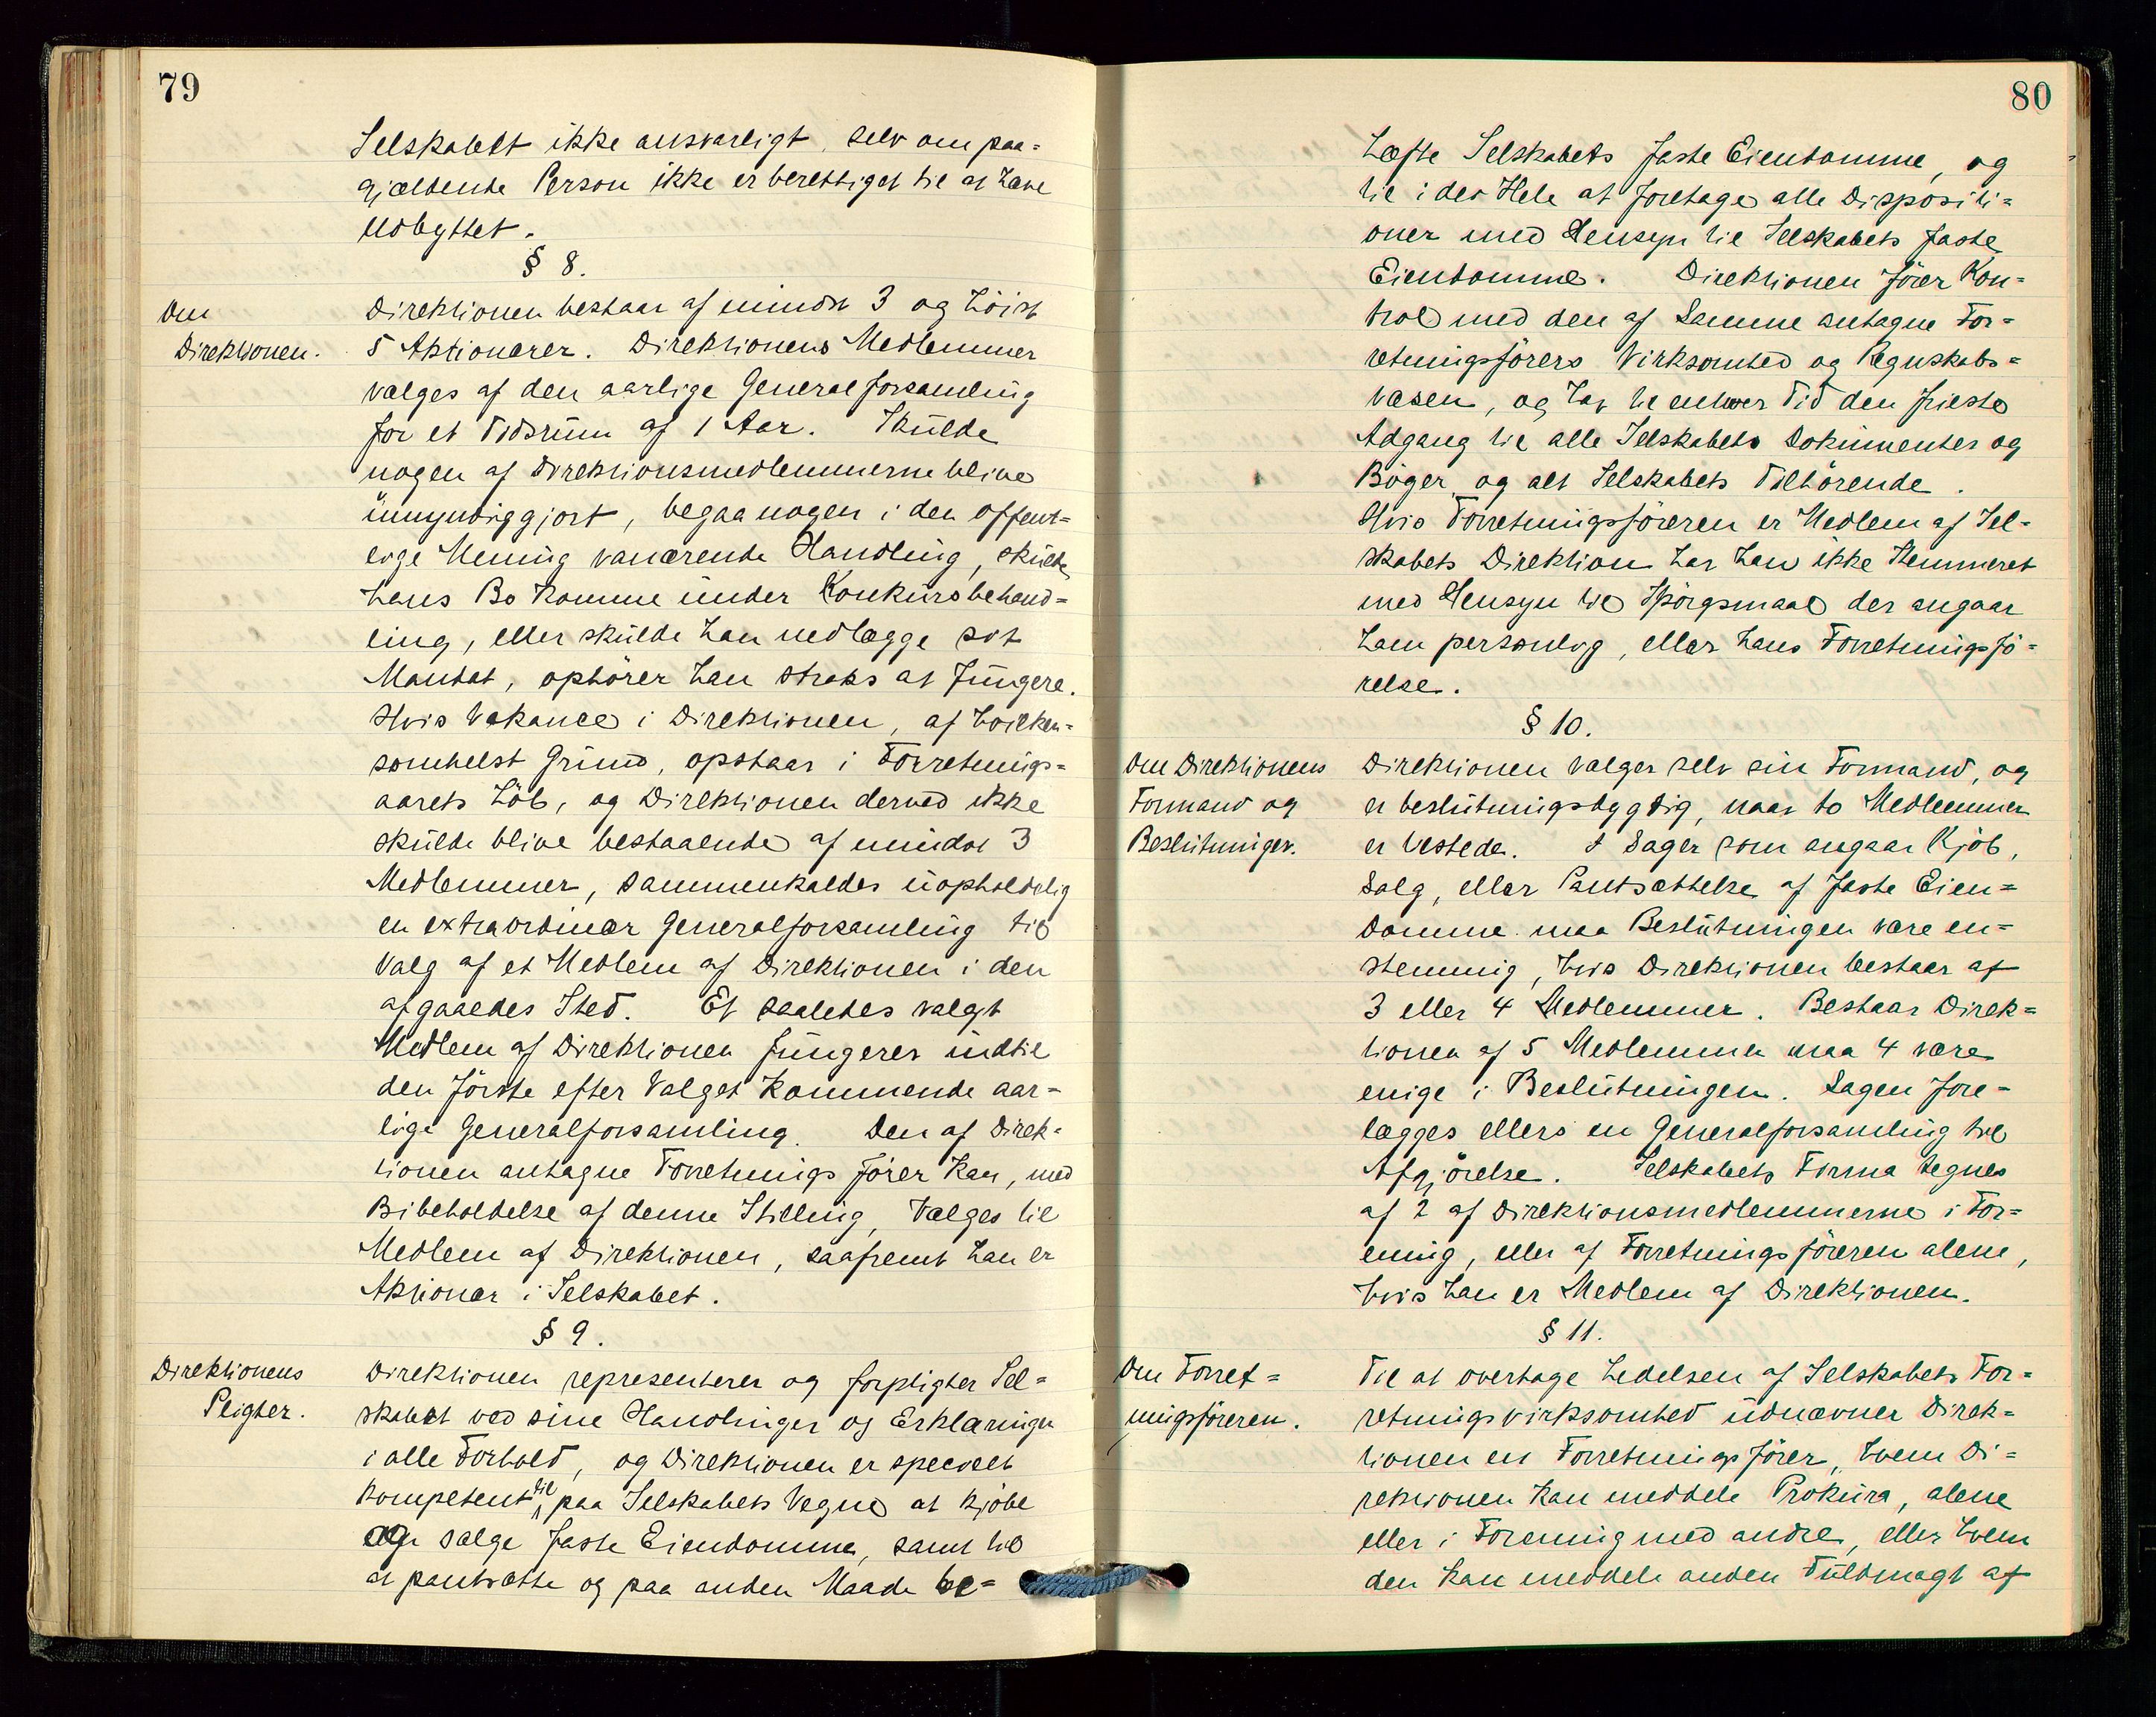 79
Selskabet ikke ansvarligt, selv om paa=
gjældende Person ikke er berettiget til at hæve
Udbyttet.
§ 8.
Om
Direktionen.
Direktionen bestaar af mindst 3 og høist
5 Aktionærer. Direktionens Medlemmer
vælges af den aarlige Generalforsamling
for et Tidsrum af 1 Aar. Skulde
nogen af Direktionsmedlemmerne blive
umyndiggjort, begaa nogen i den offent=
lige Mening vanærende Handling, skulde
hans Bo komme under Konkursbehand=
ling, eller skulde han nedlægge sit
Mandat, ophører han straks at fungere.
Hvis Vakance i Direktionen, af hvilken=
somhelst Grund, opstaar i Forretnings=
aarets Løb, og Direktionen derved ikke
skulde blive bestaaende af mindst 3
Medlemmer, sammenkaldes uopholdelig
en extraordinær Generalforsamling til
Valg af et Medlem af Direktionen i den
afgaaedes Sted. Et saaledes valgt
Medlem af Direktionen fungerer indtil
den første efter Valget kommende aar=
lige Generalforsamling. Den af Direk=
tionen antagne Forretnings fører kan, med
Bibeholdelse af denne Stilling, vælges til
Medlem af Direktionen, saafremt han er
Aktionær i Selskabet.
§ 9.
Direktionens
Pligter.
Direktionen representerer og forpligter Sel=
skabet ved sine Handlinger og Erklæringer
i alle Forhold, og Direktionen er specielt
kompetent til, paa Selskabets Vegne at kjøbe
og sælge faste Eiendomme, samt til
at pantsætte og paa anden Maade be=
80
hæfte Selskabets faste Eiendomme, og
til i det Hele at foretage alle Dispositi=
oner med Hensyn til Selskabets faste
Eiendomme. Direktionen fører Kon=
trol med den af Samme antagne For=
retningsførers Virksomhed og Regnskabs=
væsen, og har til enhver Tid den frieste
Adgang til alle Selskabets Dokumenter og
Bøger og alt Selskabets Tilhørende.
Hvis Forretningsføreren er Medlem af Sel=
skabets Direktion har han ikke Stemmeret
med Hensyn til Spørgsmaal der angaar
ham personlig, eller hans Forretningsfø=
relse.
§ 10.
Om Direktionens
Formand og
Beslutninger.
Direktionen vælger selv sin Formand, og
er beslutningsdygtig, naar to Medlemmer
er tilstede. I Sager som angaar Kjøb,
Salg, eller Pantsættelse af faste Eien=
domme maa Beslutningen være en=
stemmig, hvis Direktionen bestaar af
3 eller 4 Medlemmer. Bestaar Direk=
tionen af 5 Medlemmer maa 4 være
enige i Beslutningen. Sagen fore=
lægges ellers en Generalforsamling til
Afgjørelse. Selskabets Firma tegnes
af 2 af Direktionsmedlemmerne i For=
ening, eller af Forretnings føreren alene,
hvis han er Medlem af Direktionen.
§ 11.
Om Forret=
ningsføreren.
Til at overtage Ledelsen af Selskabets For=
retningsvirksomhed udnævner Direk=
tionen en Forretningsfører, hvem Di=
rektionen kan meddele Prokura, alene
eller i Forening med andre, eller hvem
den kan meddele anden Fuldmagt af